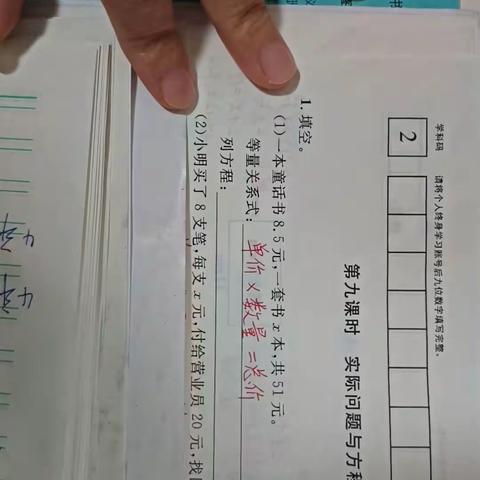 学科码 请将个人终身学习账号后九位数字填写完整。
2
第九课时 实际问题与方程
1. 填空。
(1)一本童话书8.5元,一套书x本,共51元。
等量关系式:单价×数量=总价
列方程:
(2)小明买了8支笔,每支x元,付给营业员20元,找